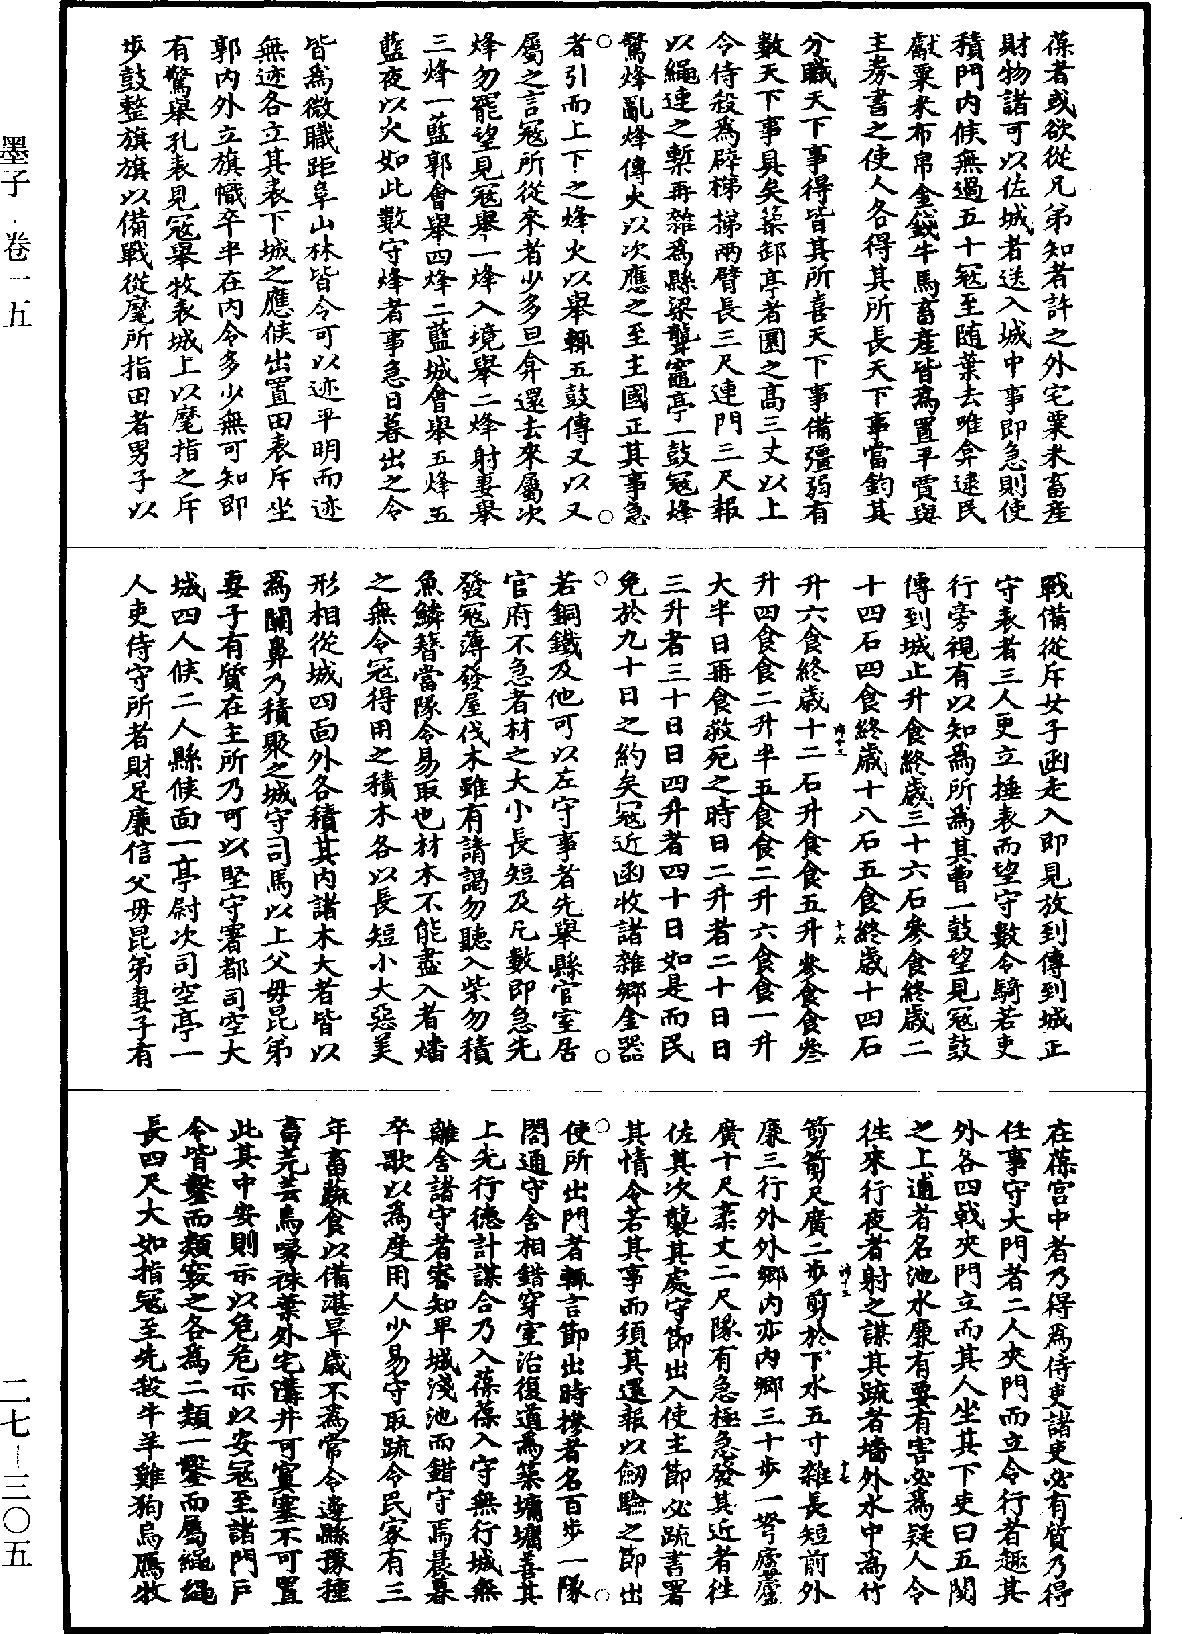 墨子·卷一五
葆者或欲從兄弟知者許之外宅粟米畜産
財物諸可以佐城者送入城中事即急則使
積門内候無過五十冦至随葉去唯弇逮民
獻粟米布帛金錢牛馬畜産皆為置平賈與
主券書之使人各得其所長天下事當鈞其
分職天下事得皆其所喜天下事備彊弱有
數天下事具矣築卸亭者圜之髙三丈以上
令侍殺為辟梯梯兩臂長三尺連門三尺報
以繩連之槧再雜為縣梁聾竈亭一鼓冦烽
驚烽亂烽傳火以次應之至主國正其事急
者引而上下之烽火以舉輒五鼓傳又以又
屬之言冦所從來者少多旦弇還去來屬次
烽勿罷望見冦舉一烽入境舉二烽射妻舉
三烽一藍郭會舉四烽二藍城會舉五烽五
藍夜以火如此數守烽者事急日暮出之令
皆為微職距阜山林皆令可以迹平明而迹
無迹各立其表下城之應候出置田表斥坐
郭内外立旗幟卒半在内令多少無可知即
有驚舉孔表見冦舉牧表城上以麾指之斥
步鼓整旗旗以備戰從麾所指田者男子以
戰備從斥女子函走入即見放到傳到城正
守表者三人更立捶表而望守數令騎若吏
行旁視有以知為所為其曹一鼓望見冦鼓
傳到城止升食終歳三十六石參食終歳二
十四石四食終歳十八石五食終歳十四石
升六食終歳十二石升食食五升參食食參
升四食食二升半五食食二升六食食一升
大半日再食救死之時日二升者二十日日
三升者三十日日四升者四十日如是而民
免於九十日之約矣冦近函收諸雜鄉金器
若銅鐵及他可以左守事者先舉縣官室居
官府不急者材之大小長短及凡數即急先
發冦薄發屋伐木雖有請謁勿聽入柴勿積
魚鱗簪當隊令易取也材木不能盡入者燔
之無令冦得用之積木各以長短小大惡美
形相從城四面外各積其内諸木大者皆以
為關鼻乃積聚之城守司馬以上父毋昆弟
妻子有質在主所乃可以堅守署都司空大
城四人候二人縣候面一亭尉次司空亭一
人吏侍守所者財足廉信父毋昆弟妻子有
在葆宫中者乃得為侍吏諸吏必有質乃得
任事守大門者二人夾門而立令行者趣其
外各四戟夾門立而其人坐其下吏日五閱
之上逋者名池水廉有要有害必為疑人令
徃來行夜者射之謀其疏者墻外水中為竹
箭箭尺廣二步剪於下水五寸雜長短前外
廉三行外外鄉内亦内鄉三十步一弩廬廬
廣十尺袤丈二尺隊有急極急發其近者徃
佐其次襲其處守節出入使主節必疏書署
其情令若其事而須其還報以劔驗之節出
使所出門者輒言節出時摻者名百步一隊
閤通守舍相錯穿室治復道為築墉墉善其
上先行德計謀合乃入葆葆入守無行城無
離舍諸守者審知卑城淺池而錯守焉晨暮
卒歌以為度用人少易守取疏令民家有三
年畜蔬食以備湛旱歳不為常令邊縣豫種
畜芫芸烏喙袾葉外宅溝井可窴塞不可置
此其中安則示以危危示以安冦至諸門戸
令皆鑿而類竅之各為二類一鑿而屬繩繩
長四尺大如指冦至先殺牛羊雞狗烏鴈牧
二七—三〇五